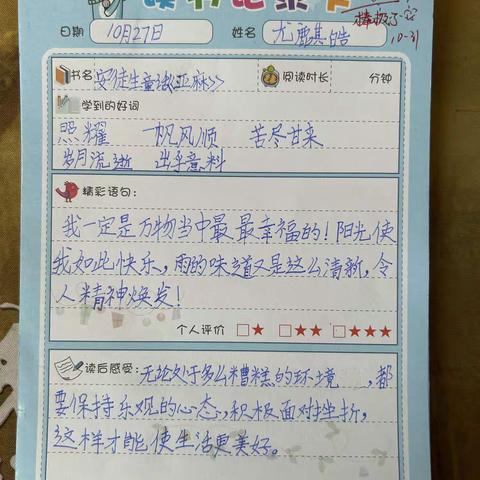 读书记录卡
10-31
日期 10月27日 姓名
书名 安徒生童话《亚麻》 阅读时长 分钟
学到的好词
照耀 一帆风顺 苦尽甘来
岁月流逝 出乎意料
精彩语句:
我一定是万物当中最最幸福的!阳光使
我如此快乐,雨的味道又是这么清新,令
人精神焕发!
个人评价 □★ □★★ □★★★
读后感受: 无论处于多么糟糕的环境,都
要保持乐观的心态,积极面对挫折,
这样才能使生活更美好。